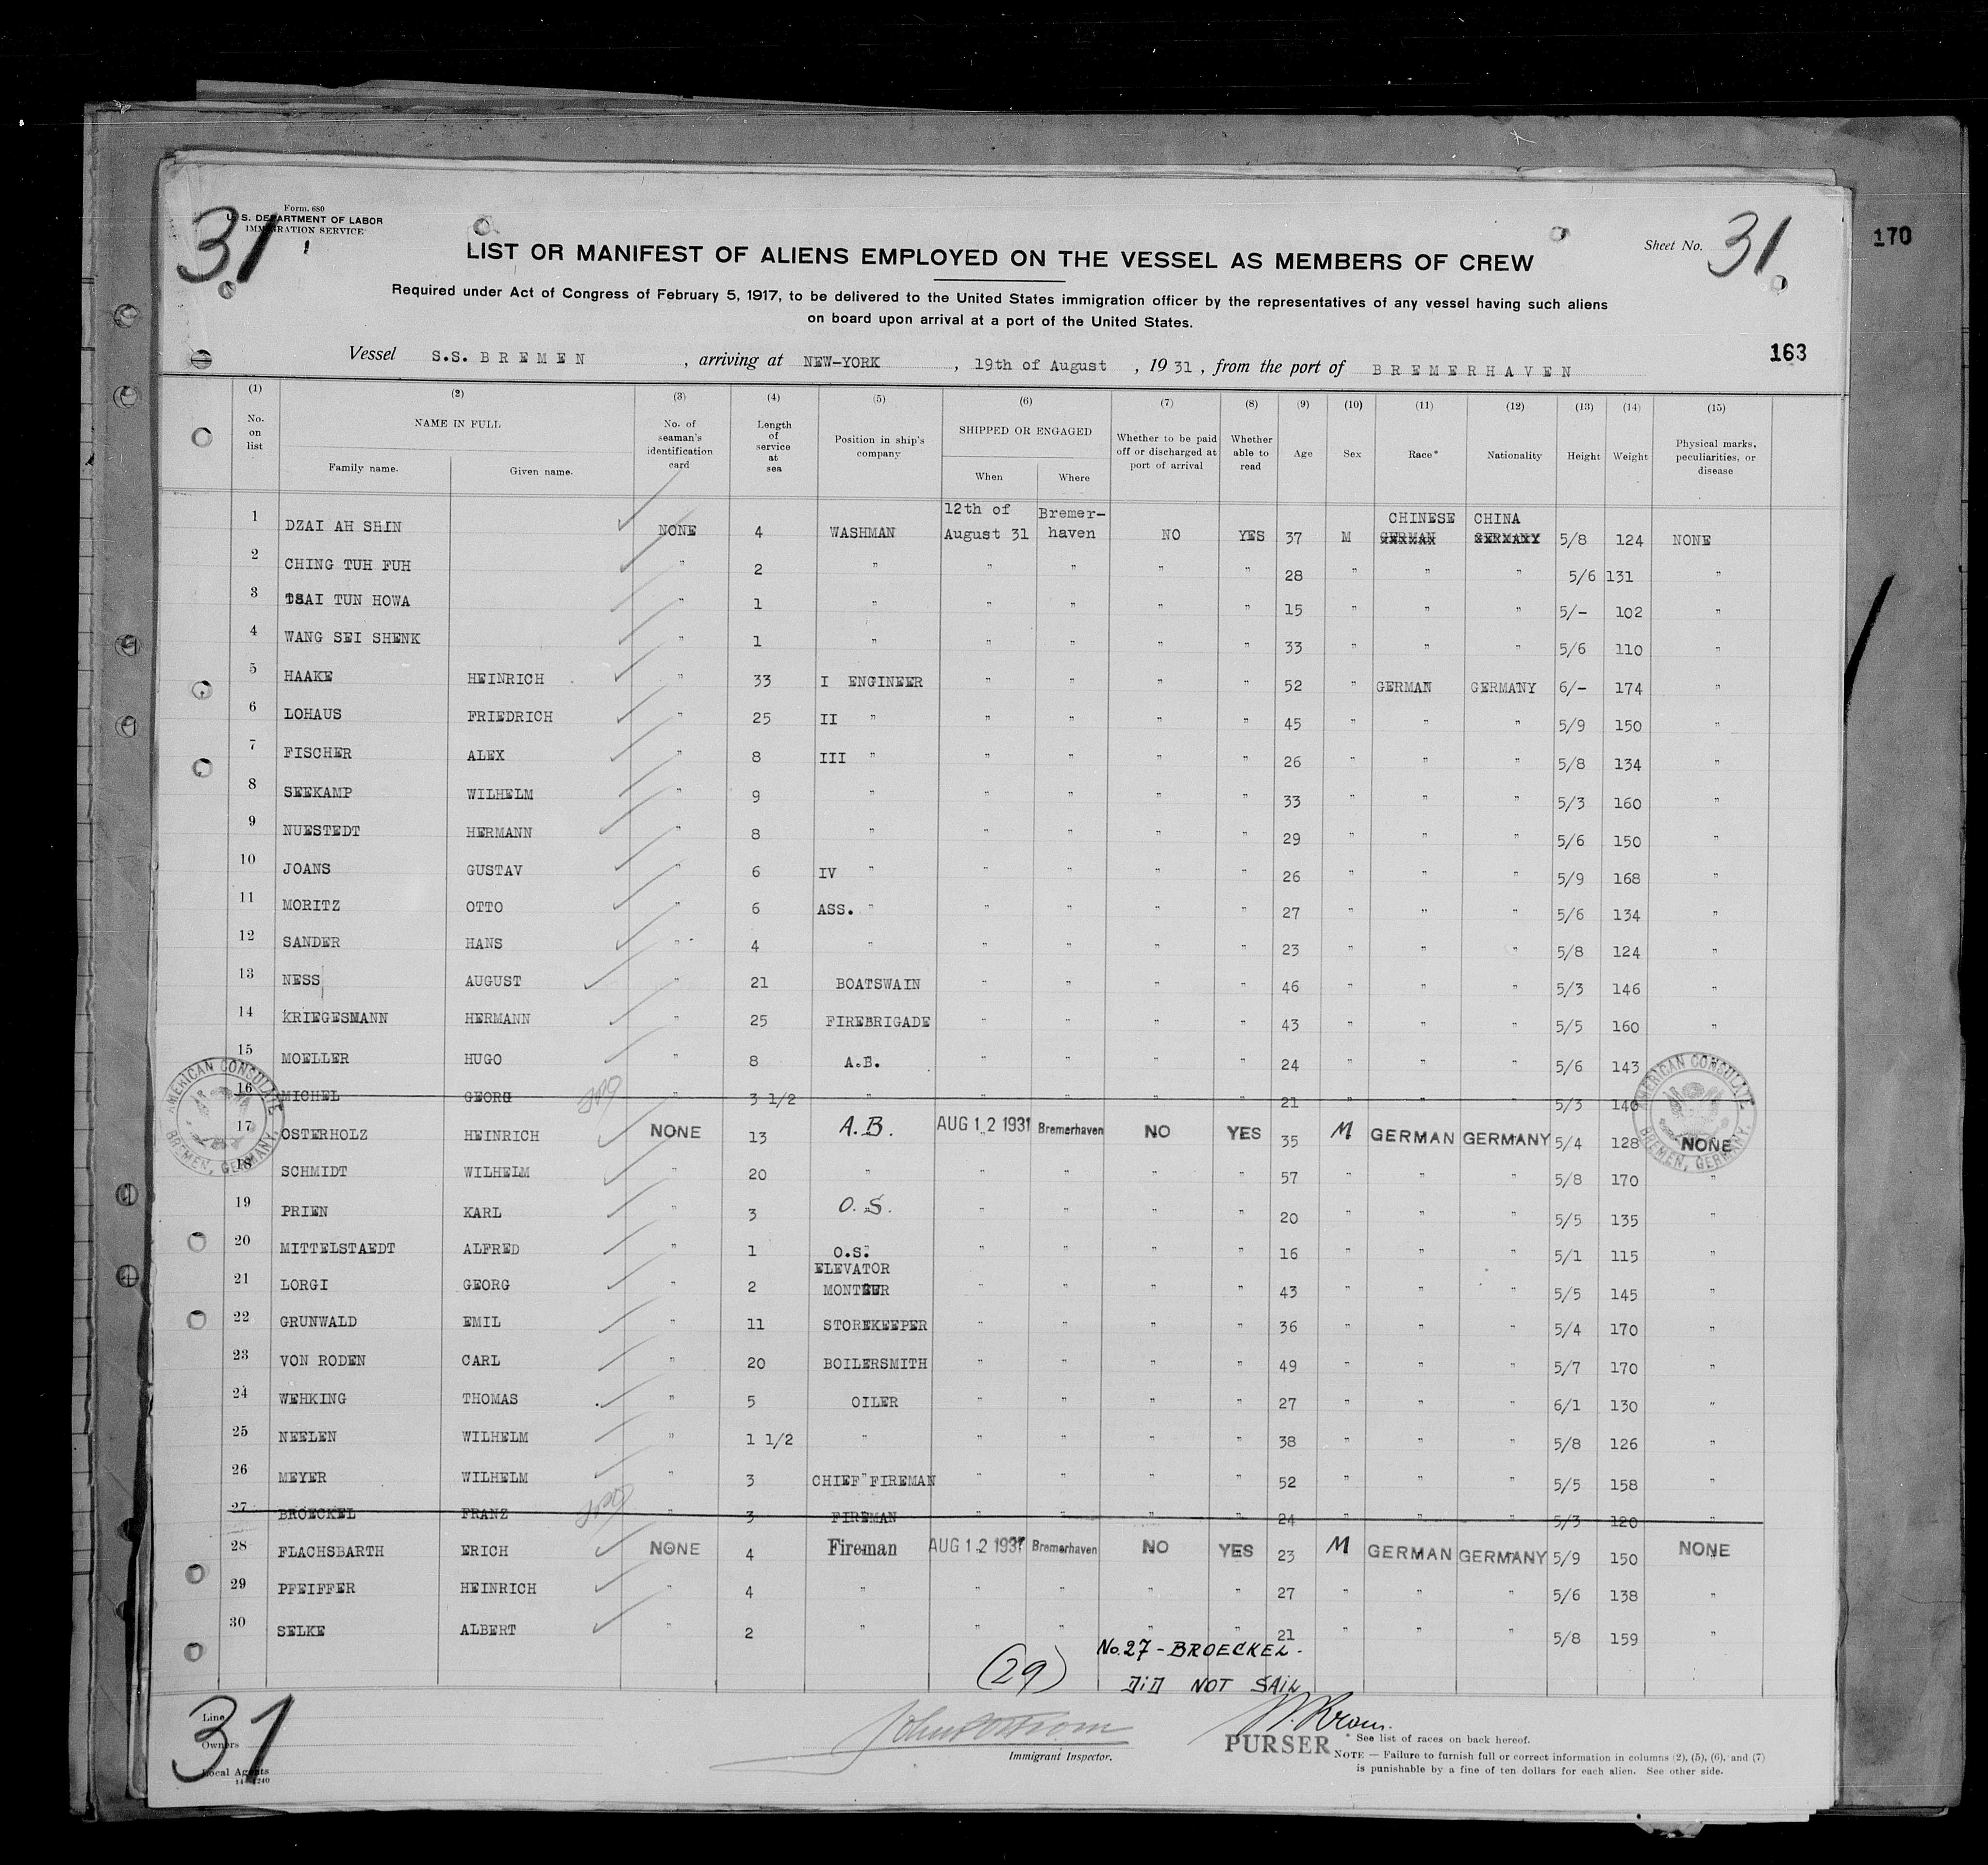 Form. 680
U. S. DEPARTMENT OF LABOR
IMMIGRATION SERVICE
31
Sheet No. 31
170
LIST OR MANIFEST OF ALIENS EMPLOYED ON THE VESSEL AS MEMBERS OF CREW
Required under Act of Congress of February 5, 1917, to be delivered to the United States immigration officer by the representatives of any vessel having such aliens
on board upon arrival at a port of the United States.
163
Vessel S.S. BREMEN , arriving at NEW-YORK , 19th of August , 1931 , from the port of BREMERHAVEN
(1) (2) (3) (4) (5) (6) (7) (8) (9) (10) (11) (12) (13) (14) (15)
No. on list NAME IN FULL Family name. Given name. No. of seaman's identification card Length of service at sea Position in ship's company SHIPPED OR ENGAGED When Where Whether to be paid off or discharged at port of arrival Whether able to read Age Sex Race* Nationality Height Weight Physical marks, peculiarities, or disease
12th of Bremer- CHINESE CHINA
1 DZAI AH SHIN NONE 4 WASHMAN August 31 haven NO YES 37 M GERMAN GERMANY 5/8 124 NONE
2 CHING TUH FUH " 2 " " " " " 28 " " " 5/6 131 "
3 TSAI TUN HOWA " 1 " " " " " 15 " " " 5/- 102 "
4 WANG SEI SHENK " 1 " " " " " 33 " " " 5/6 110 "
5 HAAKE HEINRICH " 33 I ENGINEER " " " " 52 " GERMAN GERMANY 6/- 174 "
6 LOHAUS FRIEDRICH " 25 II " " " " " 45 " " " 5/9 150 "
7 FISCHER ALEX " 8 III " " " " " 26 " " " 5/8 134 "
8 SEEKAMP WILHELM " 9 " " " " " 33 " " " 5/3 160 "
9 NUESTEDT HERMANN " 8 " " " " " 29 " " " 5/6 150 "
10 JOANS GUSTAV " 6 IV " " " " " 26 " " " 5/9 168 "
11 MORITZ OTTO " 6 ASS. " " " " " 27 " " " 5/6 134 "
12 SANDER HANS " 4 " " " " " 23 " " " 5/8 124 "
13 NESS AUGUST " 21 BOATSWAIN " " " " 46 " " " 5/3 146 "
14 KRIEGESMANN HERMANN " 25 FIREBRIGADE " " " " 43 " " " 5/5 160 "
15 MOELLER HUGO " 8 A.B. " " " " 24 " " " 5/6 143
16 MICHEL GEORG " 3 1/2 " " " " " 21 " " " 5/3 140
17 OSTERHOLZ HEINRICH NONE 13 A.B. AUG 12 1931 Bremerhaven NO YES 35 M GERMAN GERMANY 5/4 128 NONE
AMERICAN CONSULATE BREMEN, GERMANY.
AMERICAN CONSULATE BREMEN, GERMANY.
18 SCHMIDT WILHELM " 20 " " " " " 57 " " " 5/8 170 "
19 PRIEN KARL " 3 O.S. " " " " 20 " " " 5/5 135 "
20 MITTELSTAEDT ALFRED " 1 O.S. " " " " 16 " " " 5/1 115 "
ELEVATOR
21 LORGI GEORG " 2 MONTEUR " " " " 43 " " " 5/5 145 "
22 GRUNWALD EMIL " 11 STOREKEEPER " " " " 36 " " " 5/4 170 "
23 VON RODEN CARL " 20 BOILERSMITH " " " " 49 " " " 5/7 170 "
24 WEHKING THOMAS " 5 OILER " " " " 27 " " " 6/1 130 "
25 NEELEN WILHELM " 1 1/2 " " " " " 38 " " " 5/8 126 "
26 MEYER WILHELM " 3 CHIEF FIREMAN " " " " 52 " " " 5/5 158 "
27 BROECKEL FRANZ " 3 FIREMAN " " " " 24 " " " 5/3 120 "
28 FLACHSBARTH ERICH NONE 4 Fireman AUG 12 1931 Bremerhaven NO YES 23 M GERMAN GERMANY 5/9 150 NONE
29 PFEIFFER HEINRICH " 4 " " " " " 27 " " " 5/6 138 "
30 SELKE ALBERT " 2 " " " " " 21 " " " 5/8 159 "
No. 27 - BROECKEL -
(29) DID NOT SAIL
31
Line
Owners
Local Agents
Immigrant Inspector.
PURSER
* See list of races on back hereof.
NOTE — Failure to furnish full or correct information in columns (2), (5), (6), and (7)
is punishable by a fine of ten dollars for each alien. See other side.